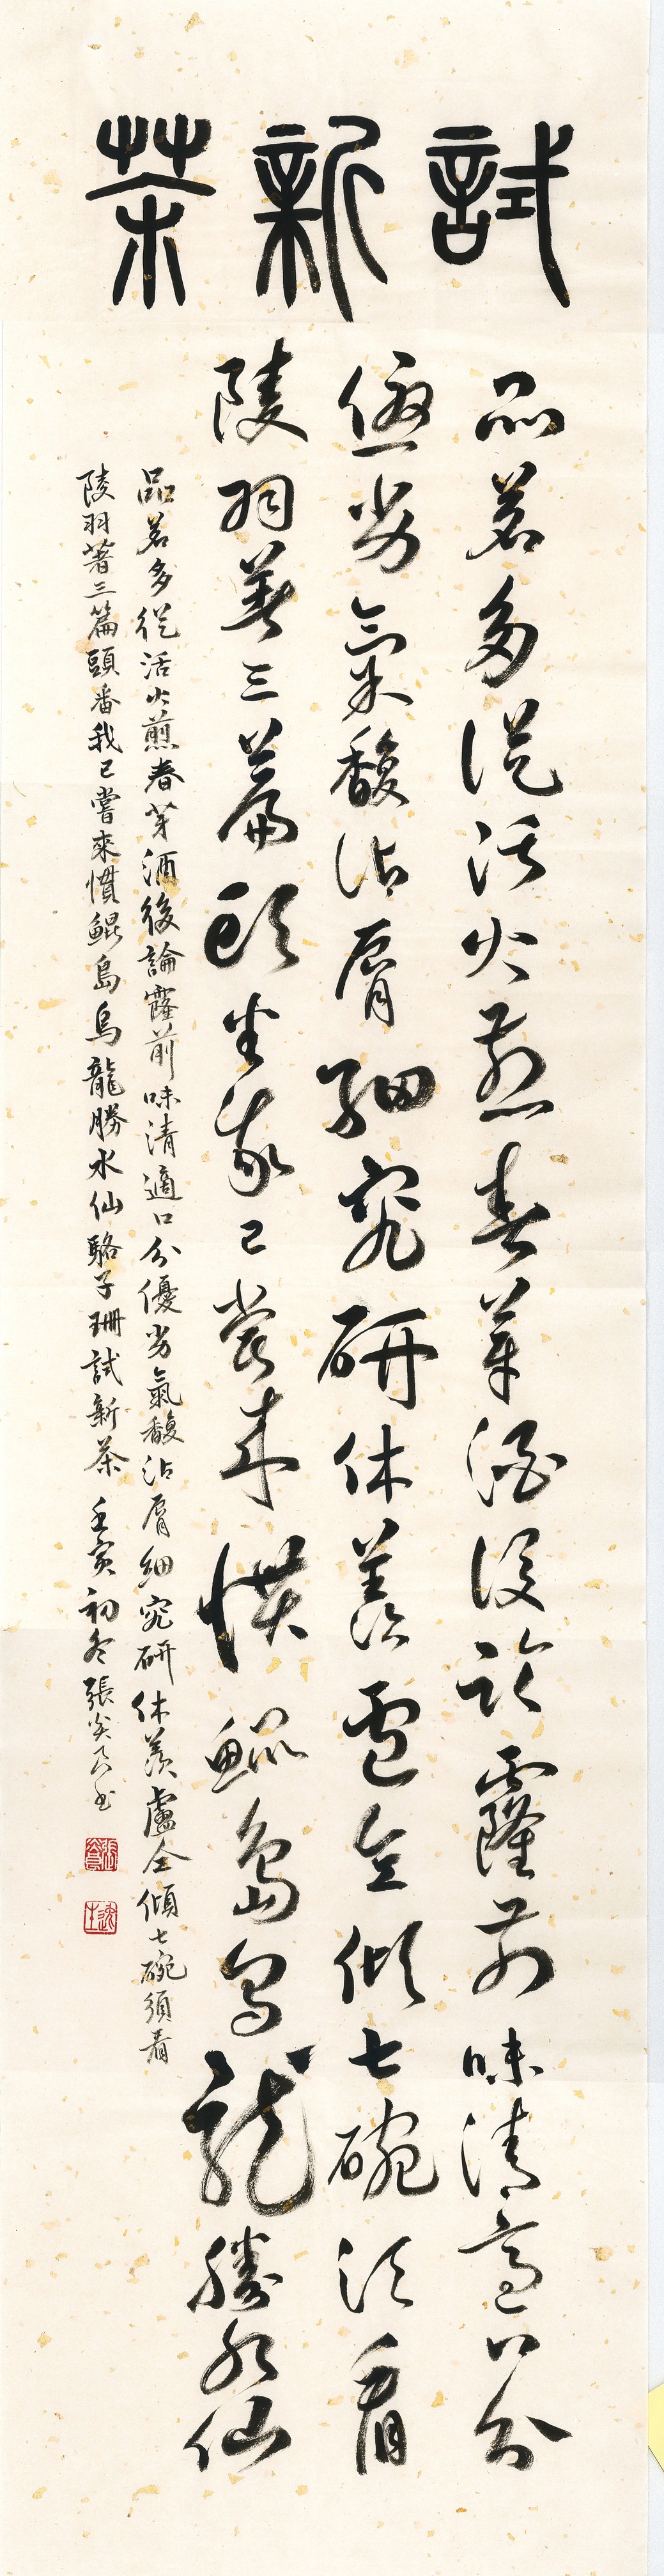 試新茶
品茗多從活火煎春芽酒後論露前味清適口分
優劣氣馥沾脣細究研休羨盧仝傾七碗須看
陵羽著三篇頭番我已嘗來慣鯤島烏龍勝水仙
品茗多從活火煎春芽酒後論露前味清適口分優劣氣馥沾脣細究研休羨盧仝傾七碗須看
陵羽著三篇頭番我已嘗來慣鯤島烏龍勝水仙駱子珊試新茶 壬寅初冬張炎書